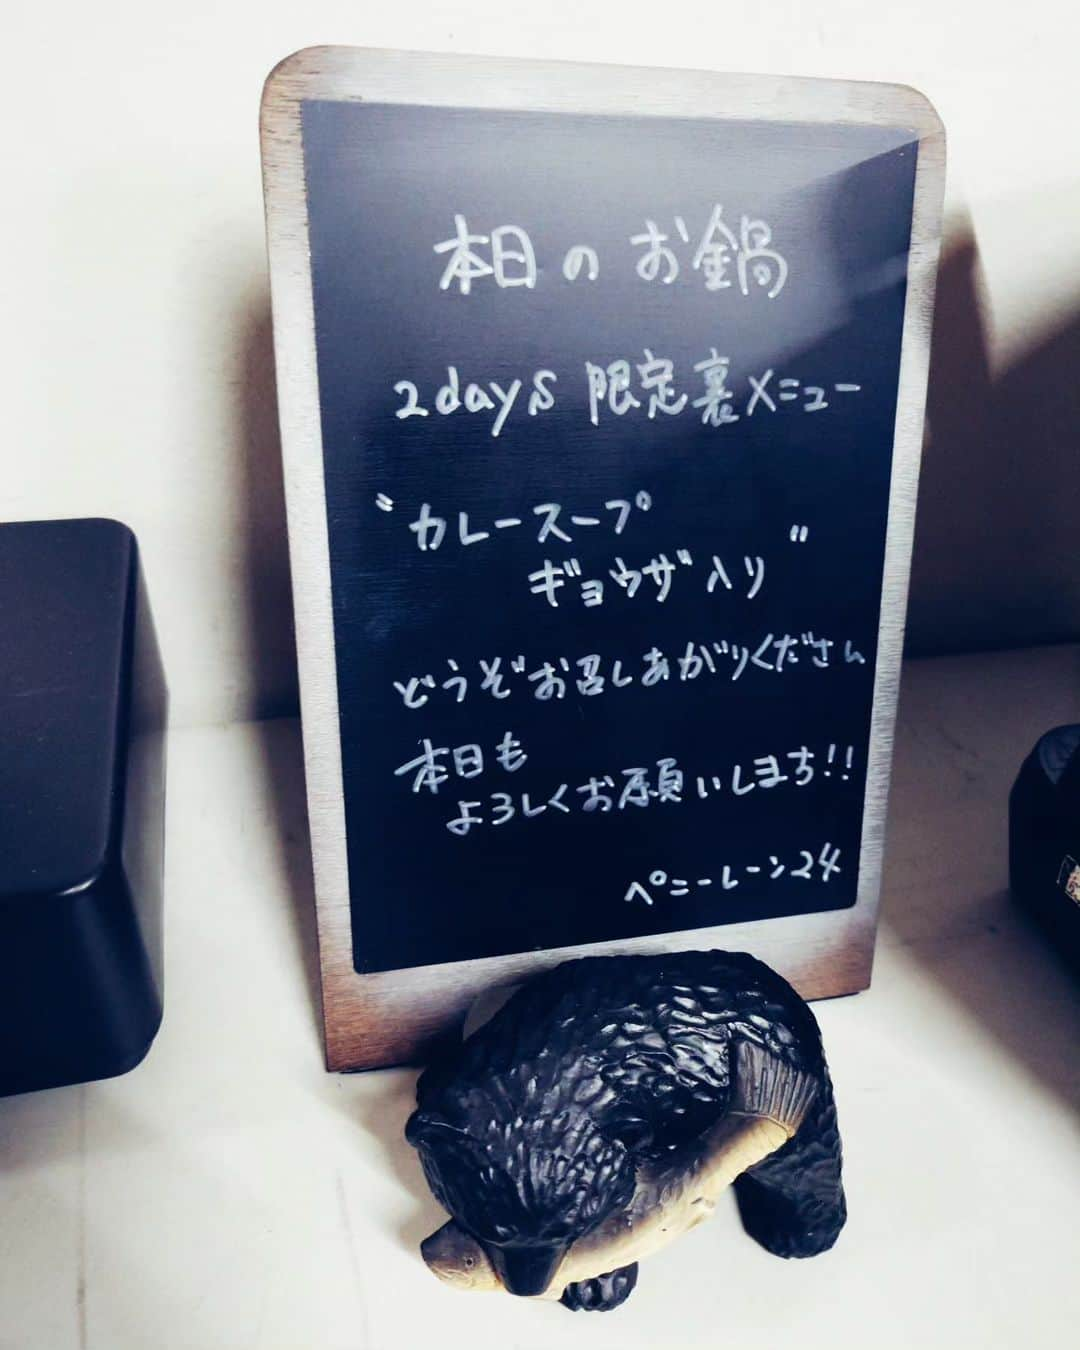 本日のお鍋
2days 限定裏メニュー
〝カレースープ
ギョウザ入り〟
どうぞお召しあがりください
本日も
よろしくお願いします!!
ペニーレーン24